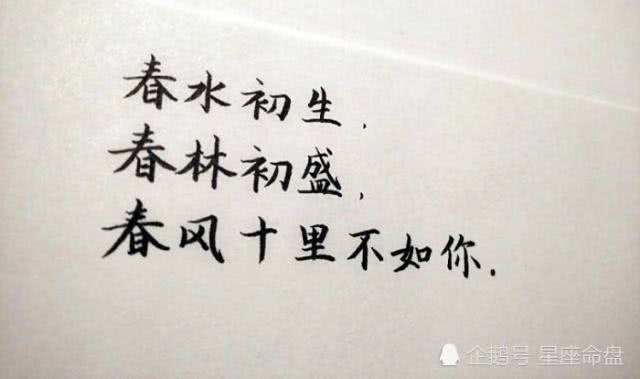 春水初生,
春林初盛,
春风十里不如你.
企鹅号 星座命盘